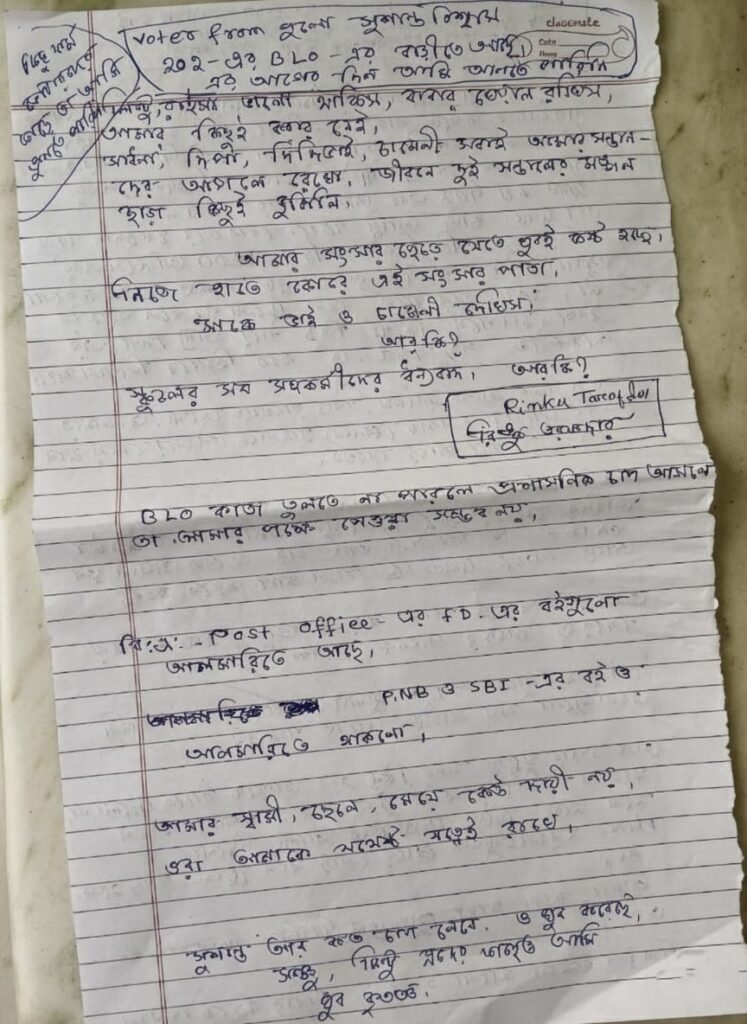 Voter from গুলো সুশান্ত বিশ্বাস
classmate
Date
Page
202-এর BLO-এর বাড়ীতে আছে।
এর আগের দিন আমি আনতে পারিনি
কিছু ফর্ম
আছে তা আমি
তুলতে পারিনি
ভালো থাকিস, বাবার খেয়াল রাখিস,
আমার কিছুই করার নেই,
দিপা, দিদিভাই, চামেলী সবাই আমার সন্তান-
দের আগলে রেখো, জীবনে দুই সন্তানের মঙ্গল
ছাড়া কিছুই বুঝিনি,
আমার সংসার ছেড়ে যেতে খুবই কষ্ট হচ্ছে।
নিজে হাতে কোরে এই সংসার পাতা,
মাকে ভাই ও চামেলী দেখিস,
আর কি?
স্কুলের সব সহকর্মীদের ধন্যবাদ। আর কি?
Rinku Tarafdar
রিঙ্কু তরফদার
BLO কাজ তুলতে না পারলে প্রশাসনিক চাপ আসলে
তা আমার পক্ষে নেওয়া সম্ভব নয়,
বি:দ্র:- Post office-এর FD.এর বইগুলো
আলমারিতে আছে,
PNB ও SBI-এর বই ও
আলমারিতে থাকলো,
আমার স্বামী, ছেলে, মেয়ে কেউ দায়ী নয়,
ওরা আমাকে যথেষ্ট যত্নেই রাখে,
সুশান্ত আর কত চাপ নেবে. ও খুব করেছে,
আমি
খুব কৃতজ্ঞ.